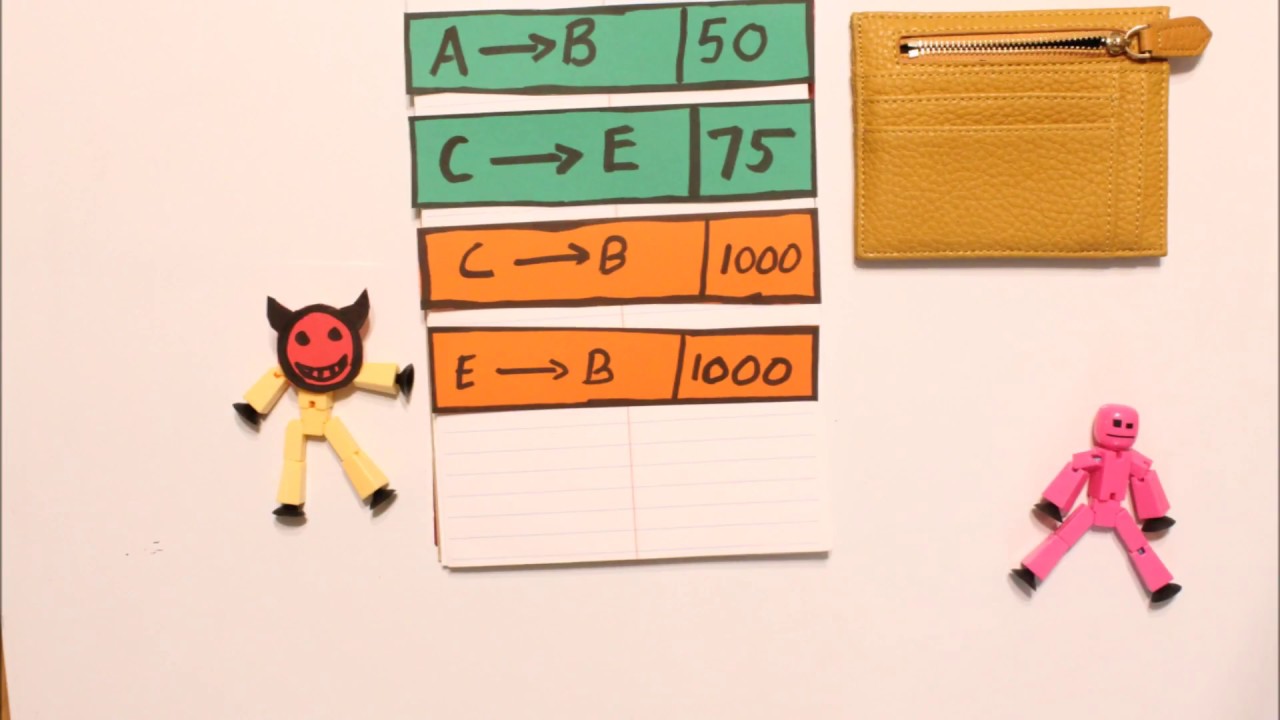 A → B 50
C → E 75
C → B 1000
E → B 1000